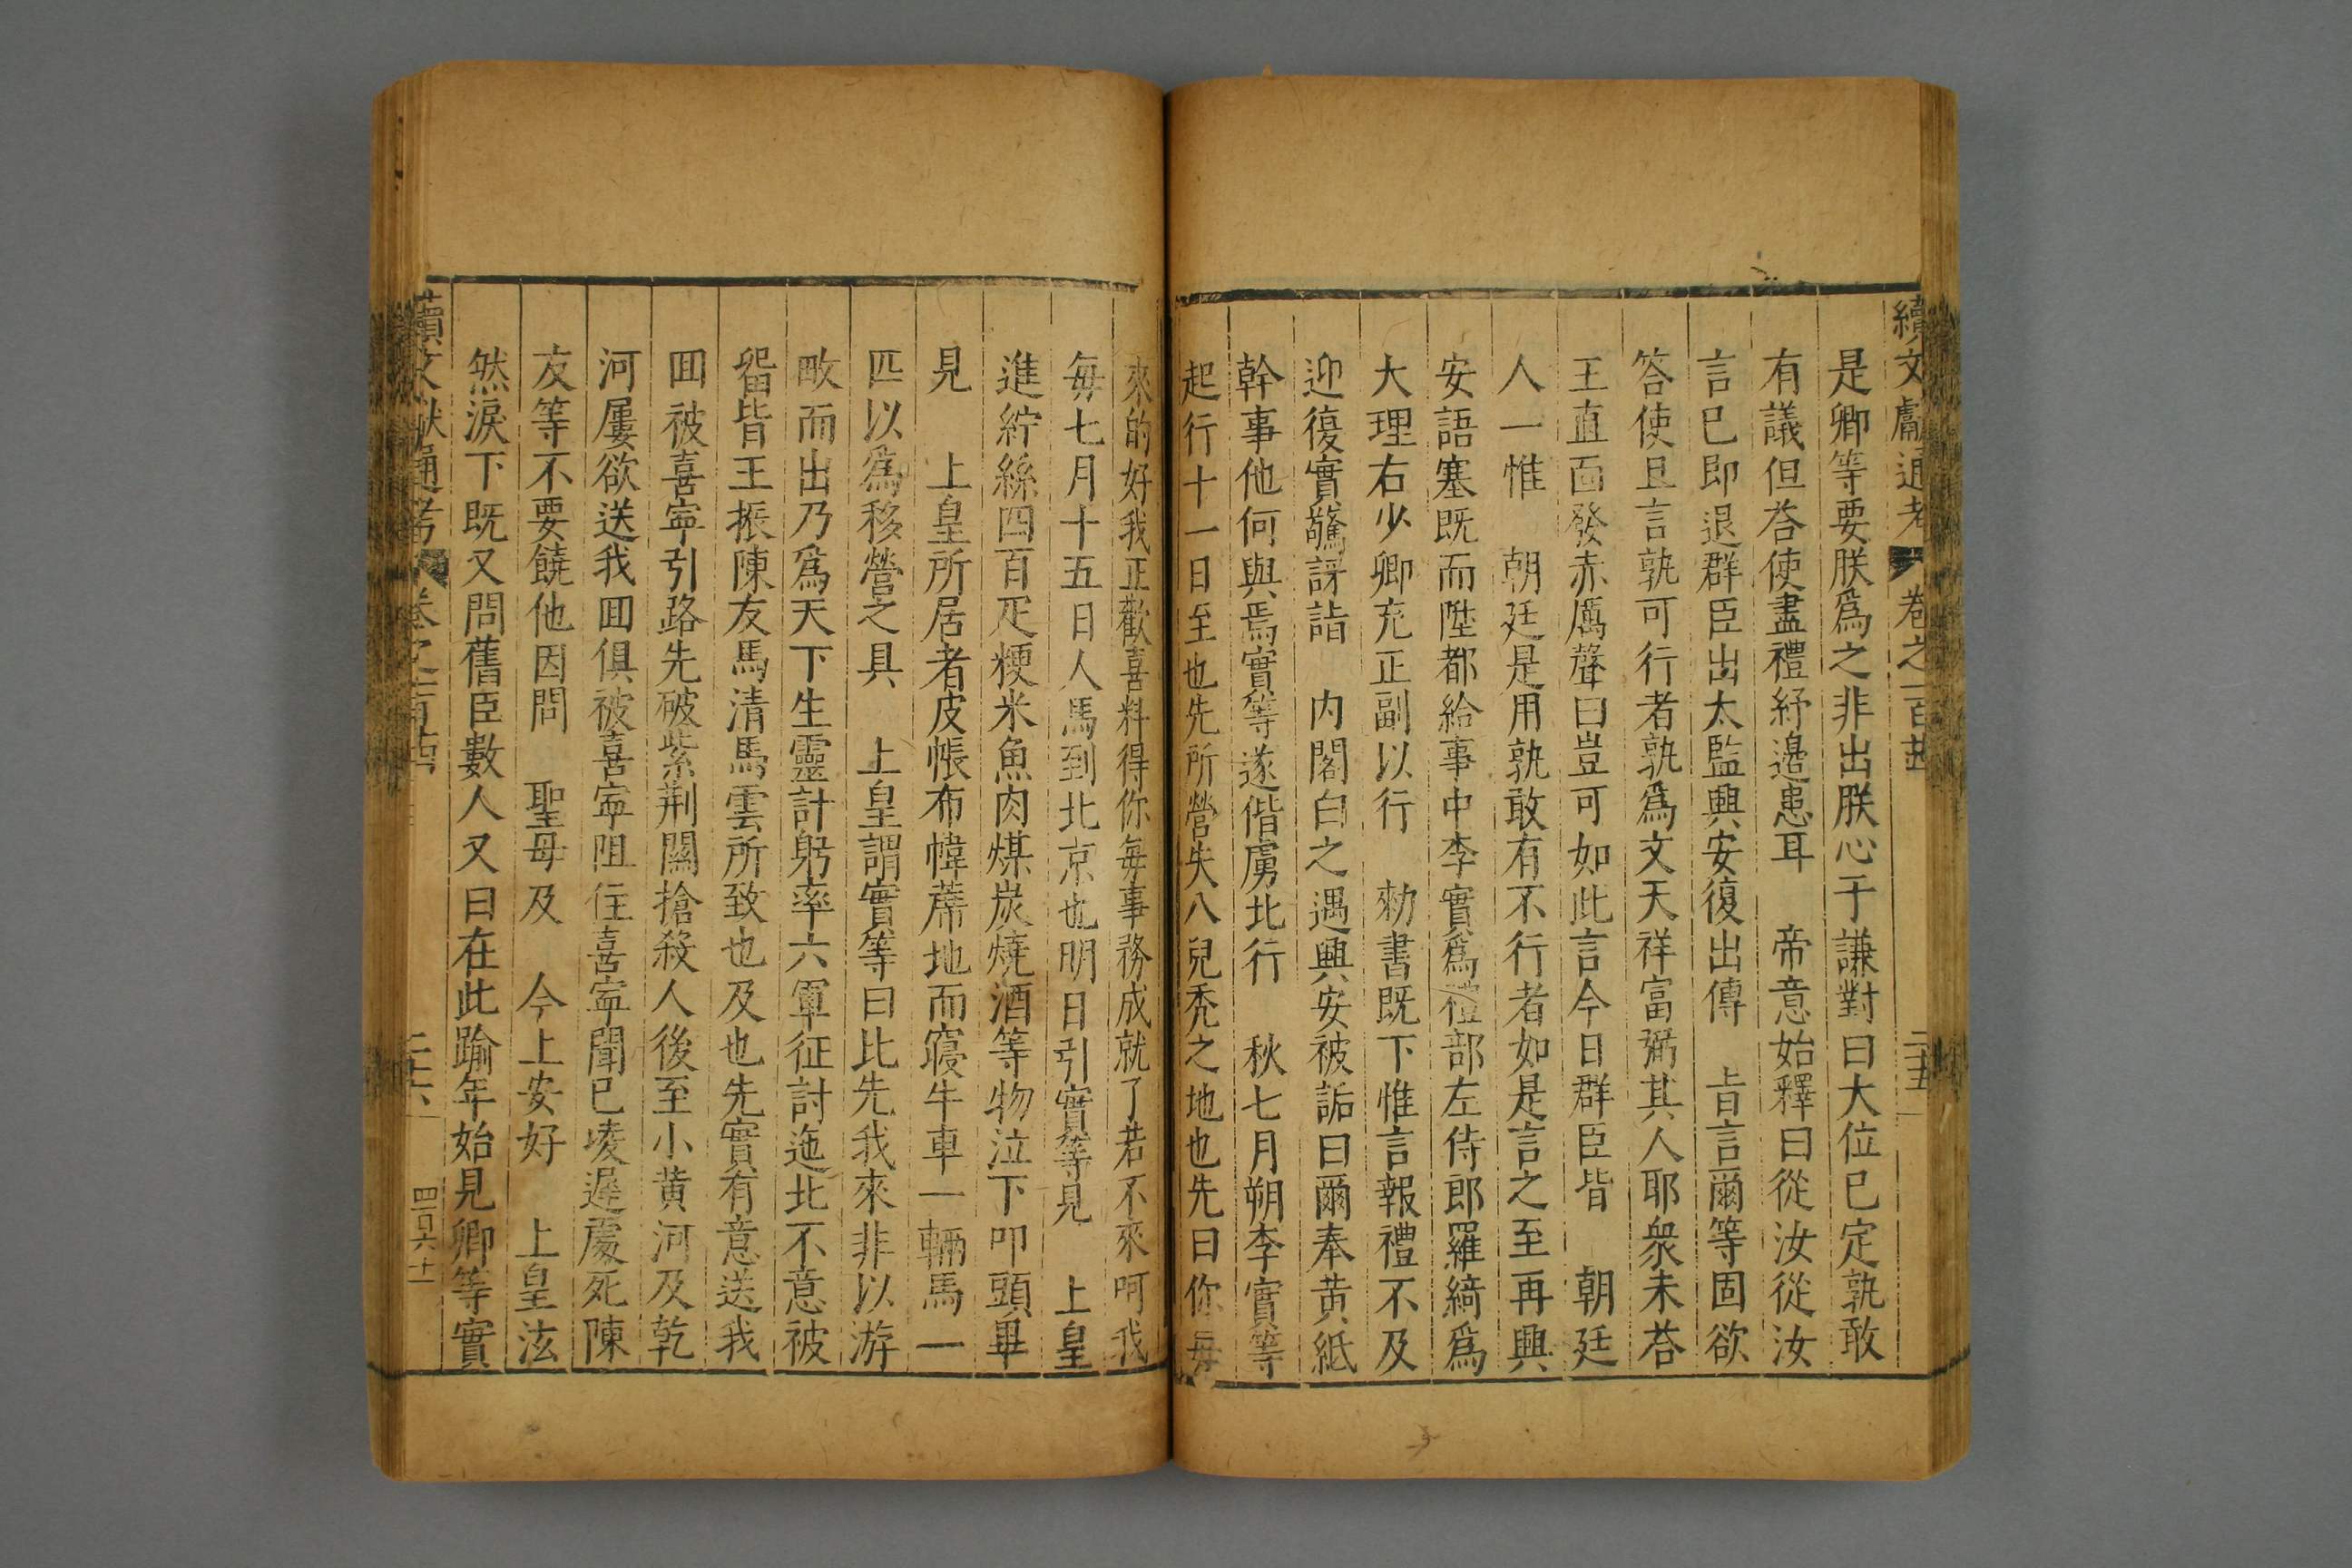 續文獻通考 卷之一百
是卿等要朕爲之非出朕心于謙對曰大位已定孰敢
有議但荅使盡禮紓邉患耳 帝意始釋曰從汝從汝
言已即退群臣出太監興安復出傳 㫖言爾等固欲
答使且言孰可行者孰爲文天祥富弼其人耶衆未荅
王直面發赤厲聲曰豈可如此言今日群臣皆 朝廷
人一惟 朝廷是用孰敢有不行者如是言之至再興
安語塞既而陞都給事中李實爲禮部左侍郎羅綺爲
大理右少卿充正副以行 勑書既下惟言報禮不及
迎復實驚訝詣 内閣白之遇興安被詬曰爾奉黄紙
幹事他何與焉實等遂偕虜北行 秋七月朔李實等
起行十一日至也先所營失八兒秃之地也先曰你毎
來的好我正歡喜料得你毎事務成就了若不來呵我
毎七月十五日人馬到北京也明日引實等見 上皇
進紵絲四百疋粳米魚肉煤炭燒酒等物泣下叩頭畢
見 上皇所居者皮帳布幃蓆地而寢牛車一輛馬一
匹以爲移營之具 上皇謂實等曰比先我來非以游
畋而出乃爲天下生靈計躬率六軍征討迤北不意被
㽞皆王振陳友馬清馬雲所致也及也先實有意送我
囬被喜寧引路先破紫荆關搶殺人後至小黄河及乾
河屢欲送我囬俱被喜寧阻住喜寧聞已凌遲處死陳
友等不要饒他因問 聖母及 今上安好 上皇泫
然淚下既又問舊臣數人又曰在此踰年始見卿等實
續文獻通考 卷之一百 二十六 四百六十